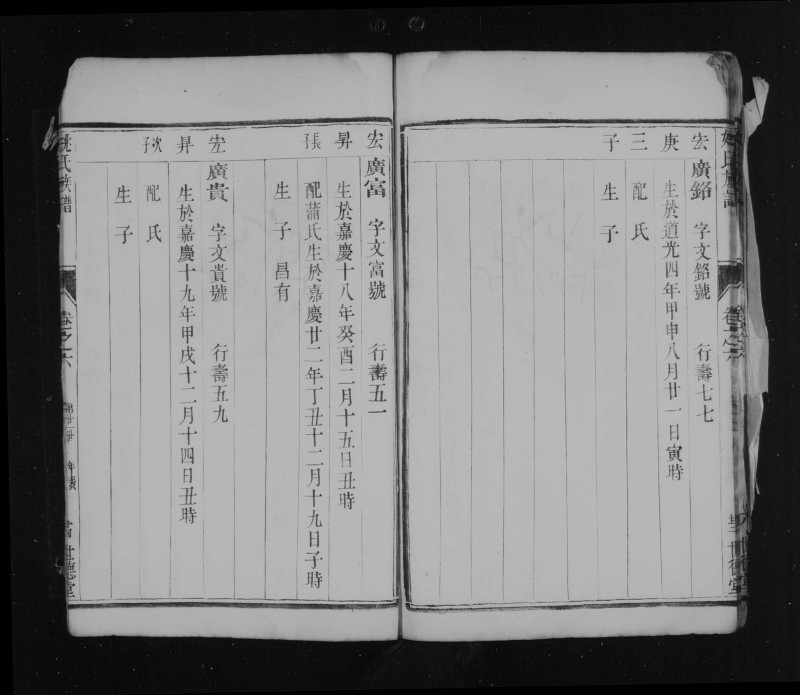 宏廣銘 字文銘號 行壽七七
庚 生於道光四年甲申八月廿一日寅時
三 配氏
子 生子
宏廣富 字文富號 行壽五一
昇 生於嘉慶十八年癸酉二月十五日丑時
張 配蒲氏生於嘉慶廿二年丁丑十二月十九日子時
子 生子 昌有
宏廣貴 字文貴號 行壽五九
昇 生於嘉慶十九年甲戌十二月十四日丑時
次 配氏
子 生子
姚氏族譜 卷之六 年表 世德堂